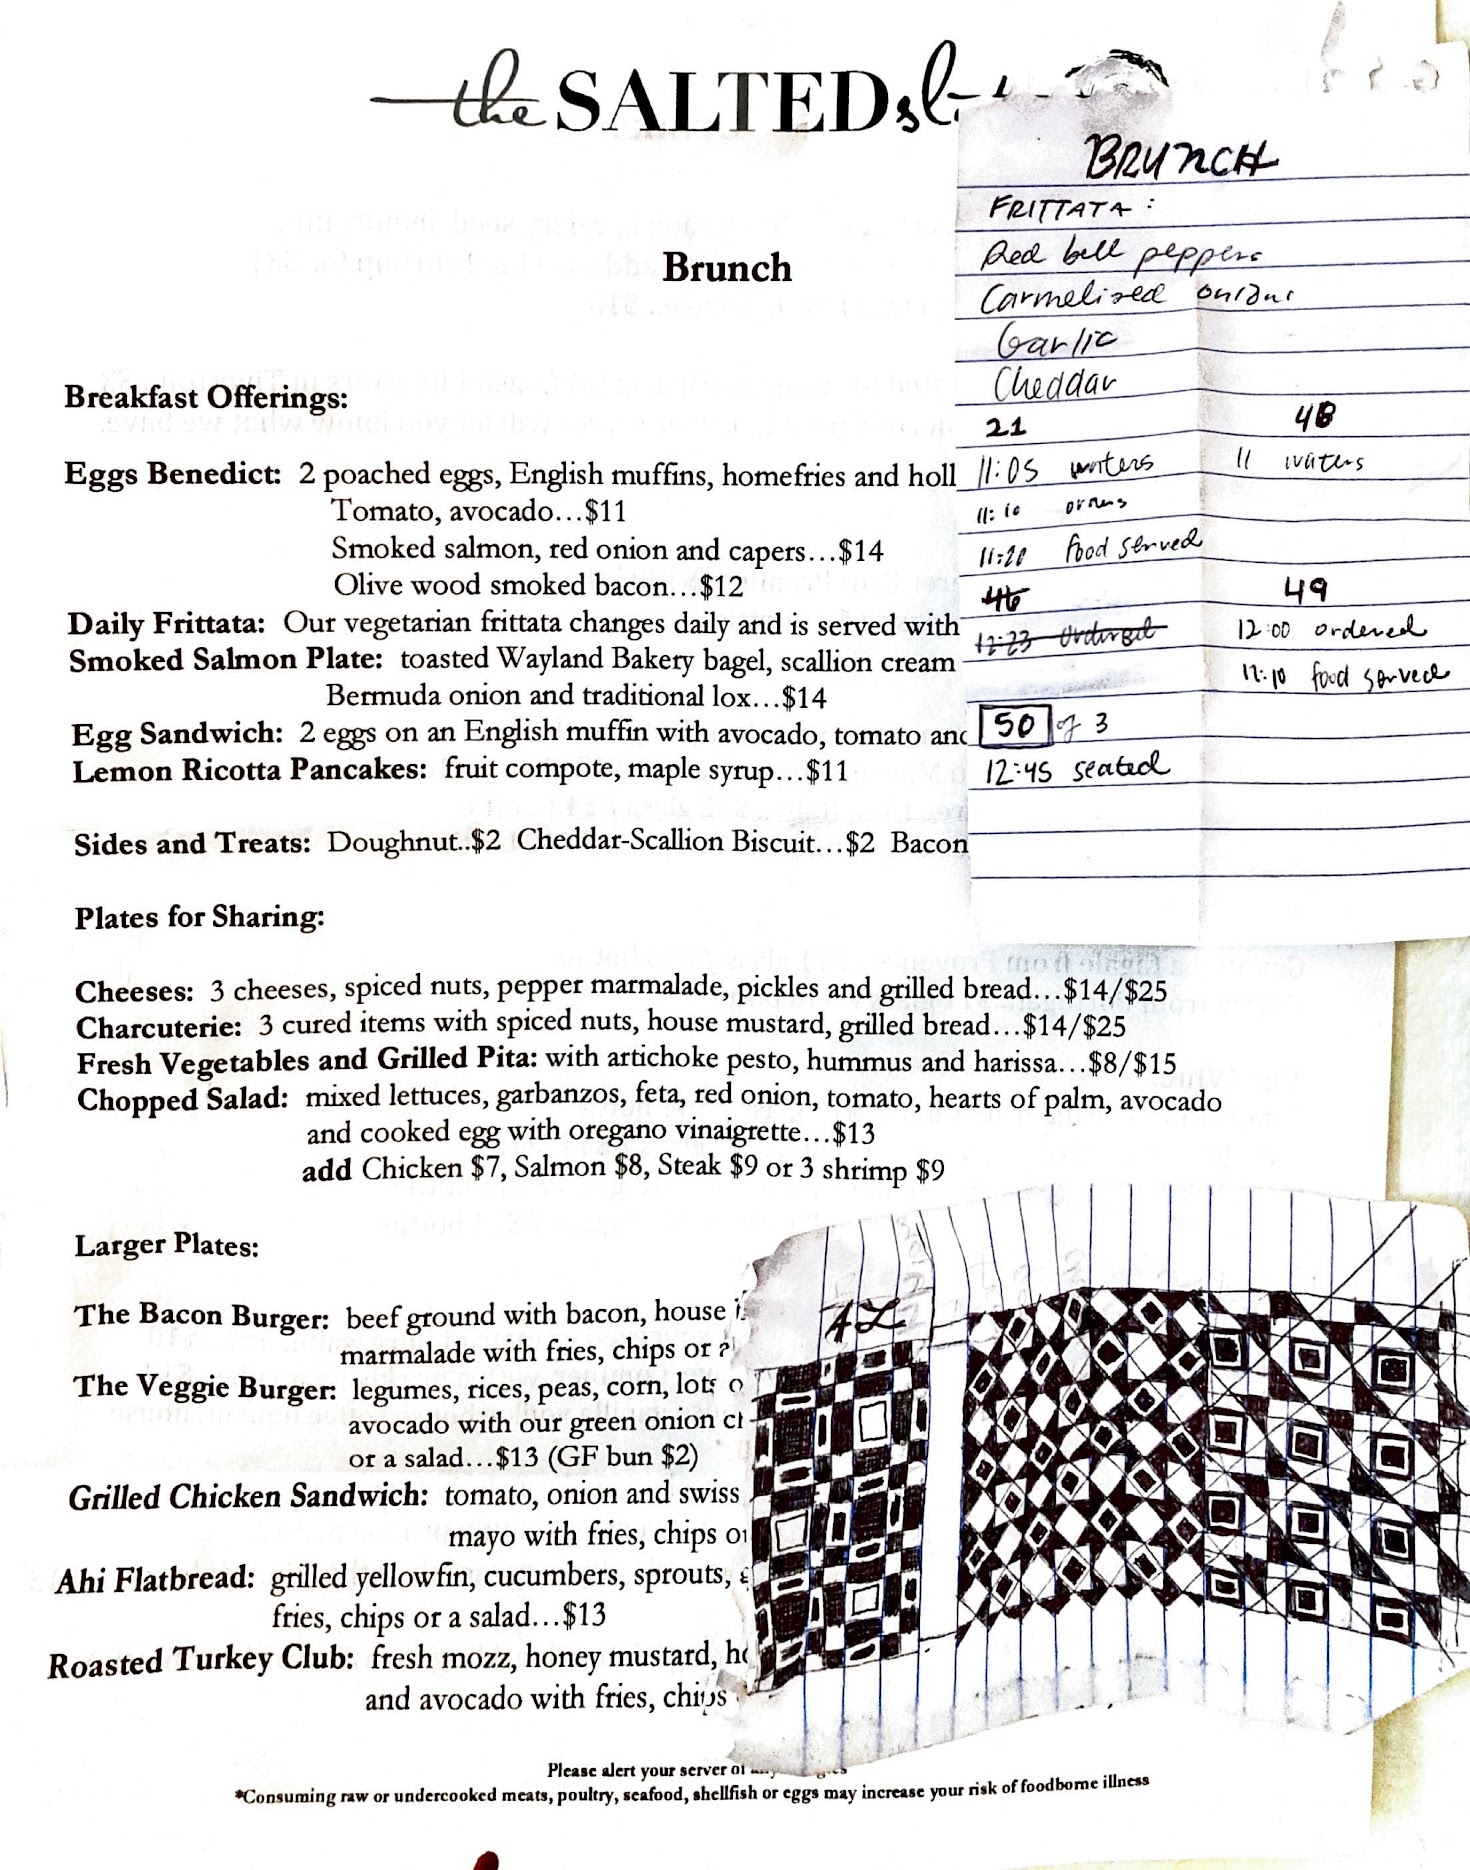 the SALTED
Brunch
Breakfast Offerings:
Eggs Benedict: 2 poached eggs, English muffins, homefries and holl
Tomato, avocado...$11
Smoked salmon, red onion and capers...$14
Olive wood smoked bacon...$12
Daily Frittata: Our vegetarian frittata changes daily and is served with
Smoked Salmon Plate: toasted Wayland Bakery bagel, scallion cream
Bermuda onion and traditional lox...$14
Egg Sandwich: 2 eggs on an English muffin with avocado, tomato and
Lemon Ricotta Pancakes: fruit compote, maple syrup...$11
Sides and Treats: Doughnut..$2 Cheddar-Scallion Biscuit...$2 Bacon
Plates for Sharing:
Cheeses: 3 cheeses, spiced nuts, pepper marmalade, pickles and grilled bread...$14/$25
Charcuterie: 3 cured items with spiced nuts, house mustard, grilled bread...$14/$25
Fresh Vegetables and Grilled Pita: with artichoke pesto, hummus and harissa...$8/$15
Chopped Salad: mixed lettuces, garbanzos, feta, red onion, tomato, hearts of palm, avocado
and cooked egg with oregano vinaigrette...$13
add Chicken $7, Salmon $8, Steak $9 or 3 shrimp $9
Larger Plates:
The Bacon Burger: beef ground with bacon, house
marmalade with fries, chips or
The Veggie Burger: legumes, rices, peas, corn, lots o
avocado with our green onion
or a salad...$13 (GF bun $2)
Grilled Chicken Sandwich: tomato, onion and swiss
mayo with fries, chips or
Ahi Flatbread: grilled yellowfin, cucumbers, sprouts,
fries, chips or a salad...$13
Roasted Turkey Club: fresh mozz, honey mustard,
and avocado with fries, chips
Please alert your server of
*Consuming raw or undercooked meats, poultry, seafood, shellfish or eggs may increase your risk of foodborne illness
BRUNCH
FRITTATA:
Red bell peppers
Carmelized onions
Garlic
Cheddar
21 48
11:05 waters 11 waters
11:10
11:20 food served
46 49
12:23 ordered 12:00 ordered
12:10 food served
50 of 3
12:45 seated
AL